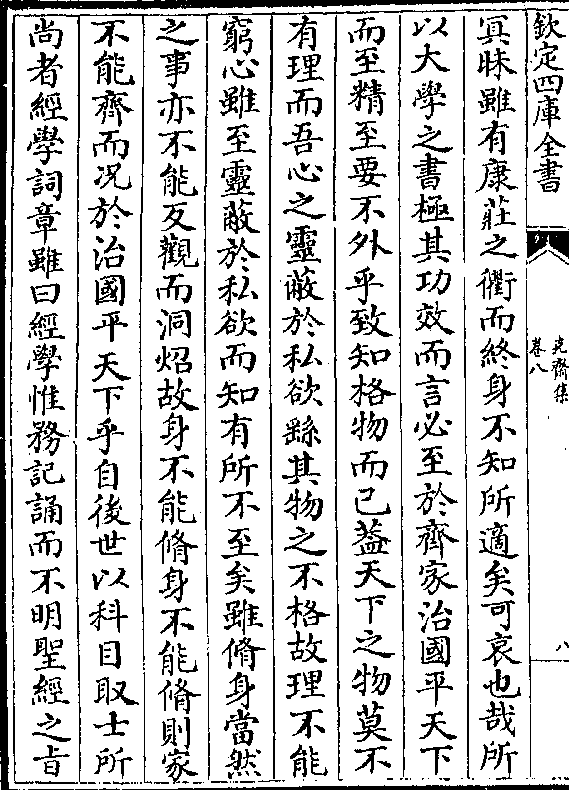 欽定四庫全書
卷八
八
冥昧雖有康莊之衢而終身不知所適矣可哀也哉所
以大學之書極其功效而言必至於齊家治國平天下
而至精至要不外乎致知格物而已葢天下之物莫不
有理而吾心之靈蔽於私欲繇其物之不格故理不能
窮心雖至靈蔽於私欲而知有所不至矣雖脩身當然
之事亦不能反觀而洞炤故身不能脩身不能脩則家
不能齊而况於治國平天下乎自後世以科目取士所
尚者經學詞章雖曰經學惟務記誦而不明聖經之㫖